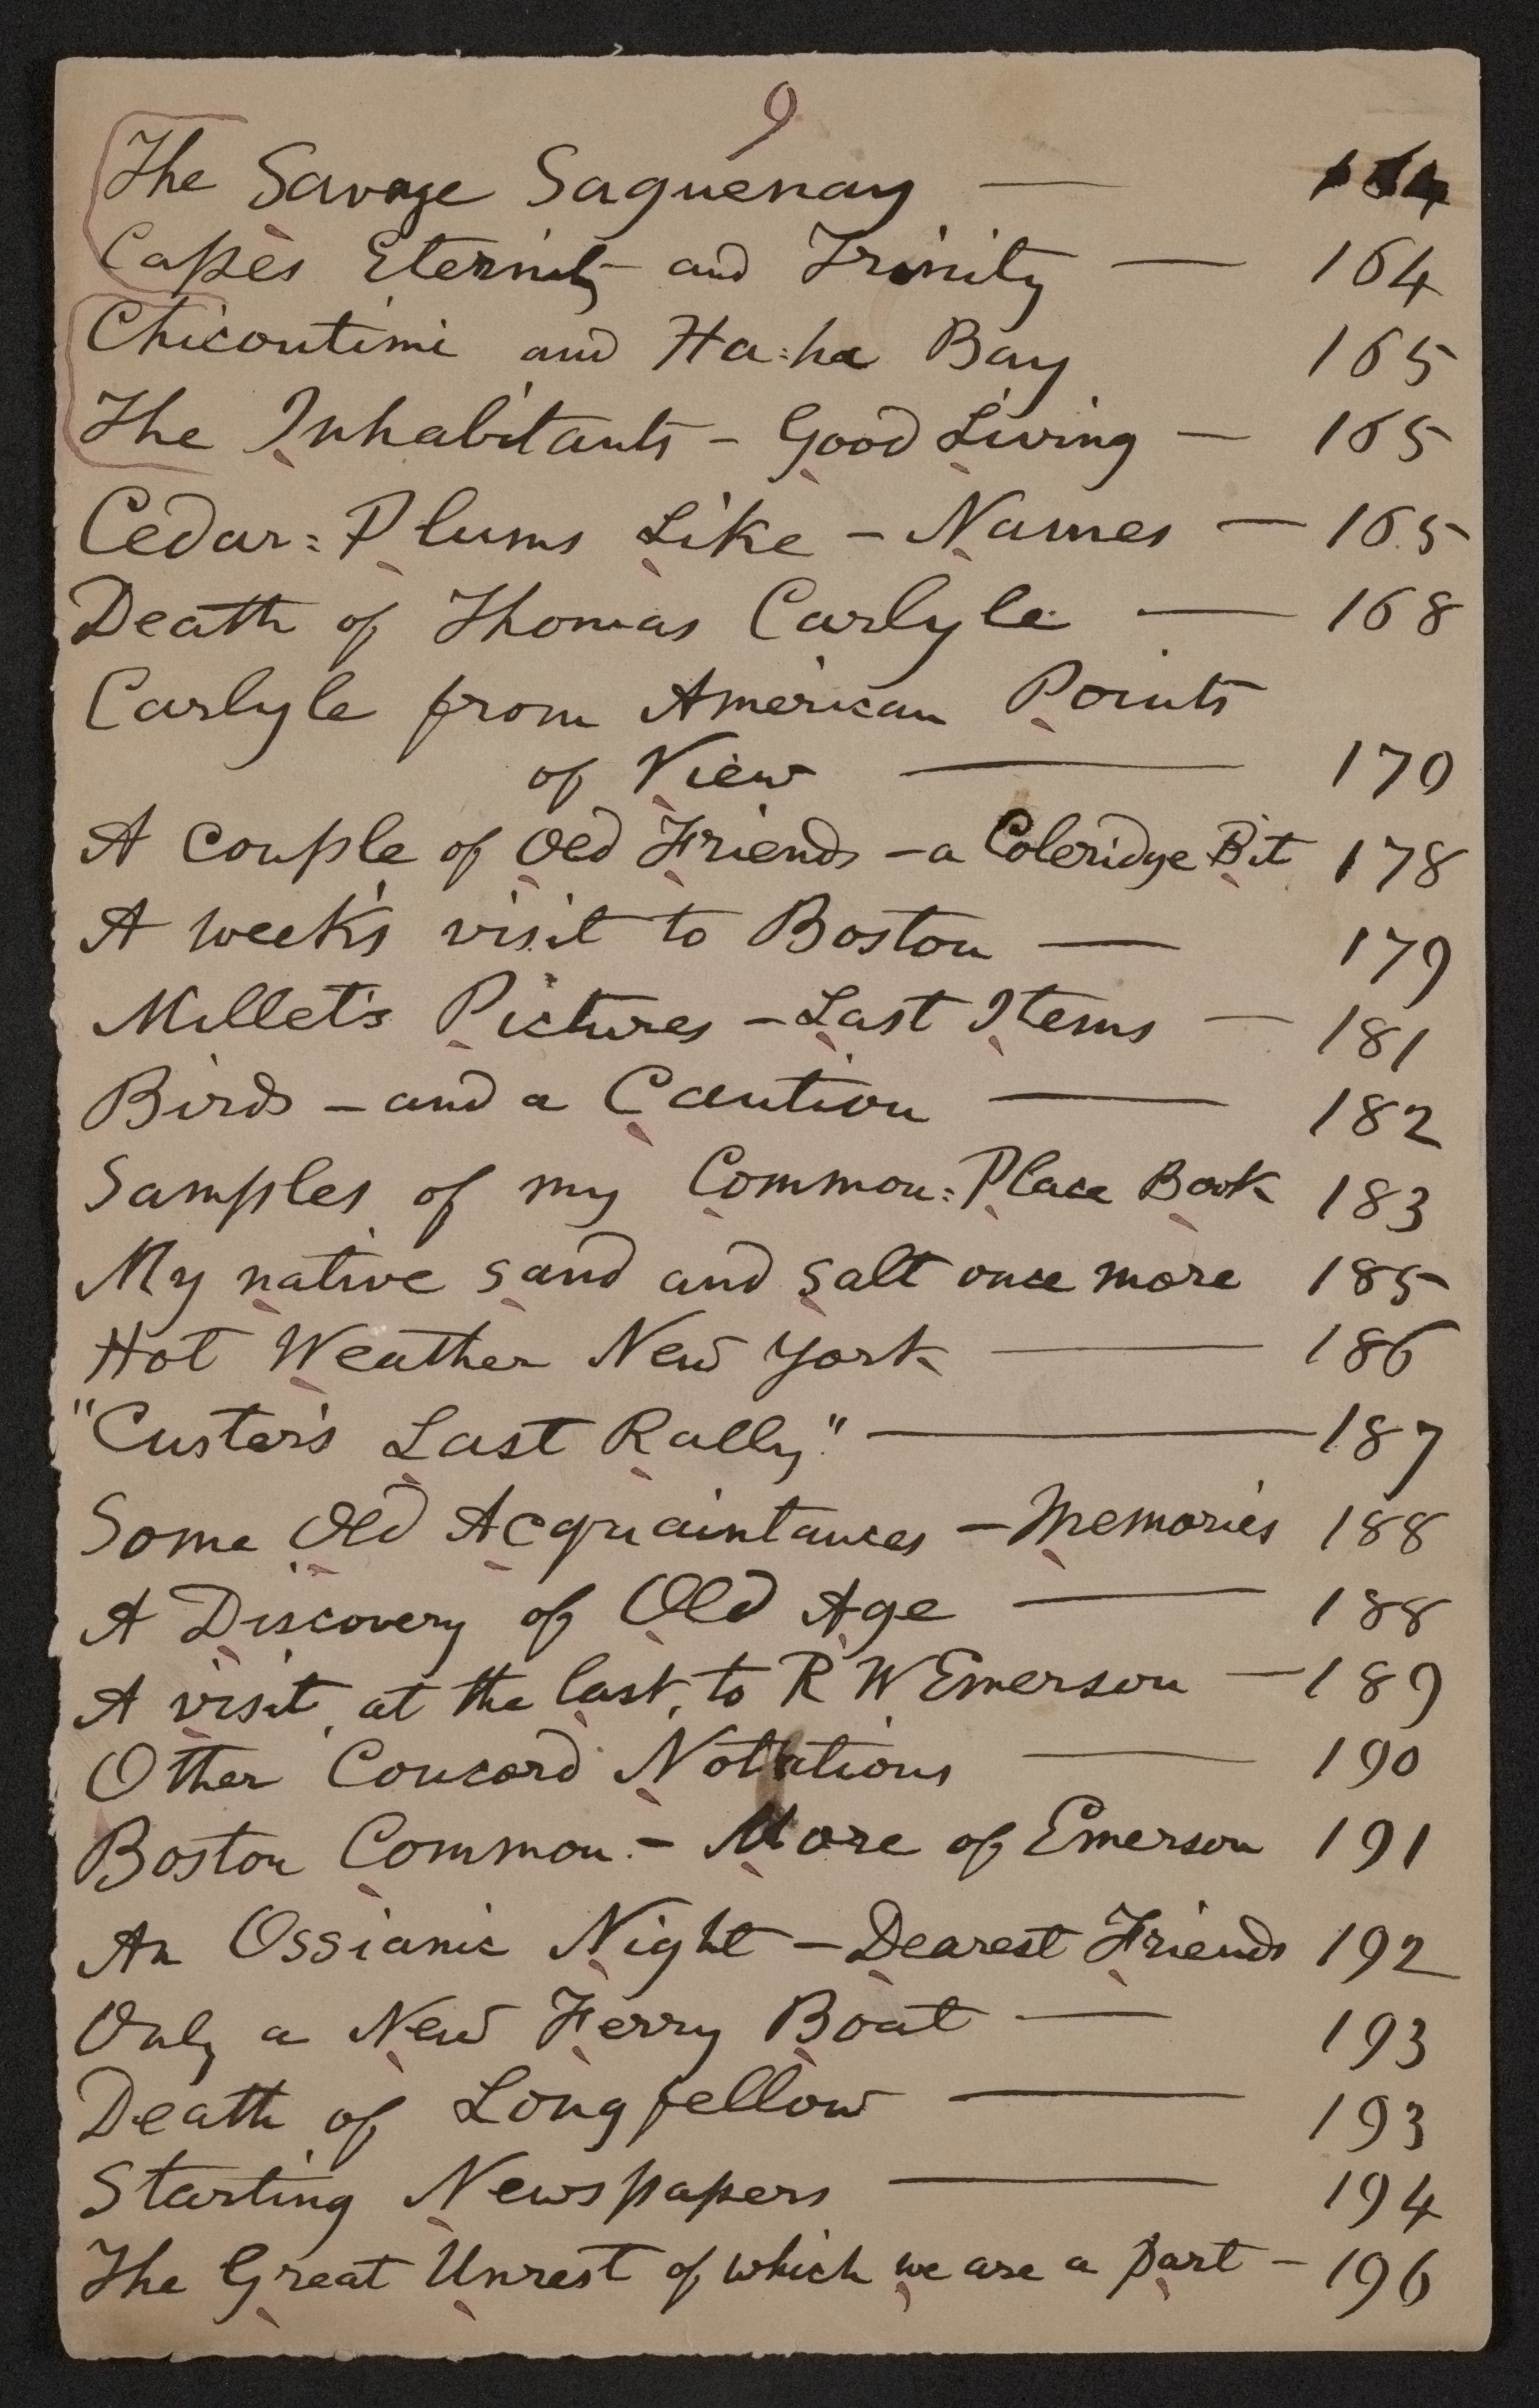 9
The Savage Saguenay — 164
Capes Eternity and Trinity — 164
Chicoutimi and Ha=ha Bay 165
The Inhabitants – Good Living — 165
Cedar=Plums Like – Names — 165
Death of Thomas Carlyle — 168
Carlyle from American Points
of View — 170
A couple of Old Friends – a Coleridge Bit 178
A week's visit to Boston — 179
Millet's Pictures – Last Items — 181
Birds – and a Caution — 182
Samples of my Common=Place Book 183
My native sand and salt once more 185
Hot Weather New York — 186
"Custer's Last Rally" — 187
Some Old Acquaintances – Memories 188
A Discovery of Old Age — 188
A visit, at the last, to R W Emerson — 189
Other Concord Notations — 190
Boston Common – More of Emerson 191
An Ossianic Night – Dearest Friends 192
Only a New Ferry Boat — 193
Death of Longfellow — 193
Starting Newspapers — 194
The Great Unrest of which we are a part – 196